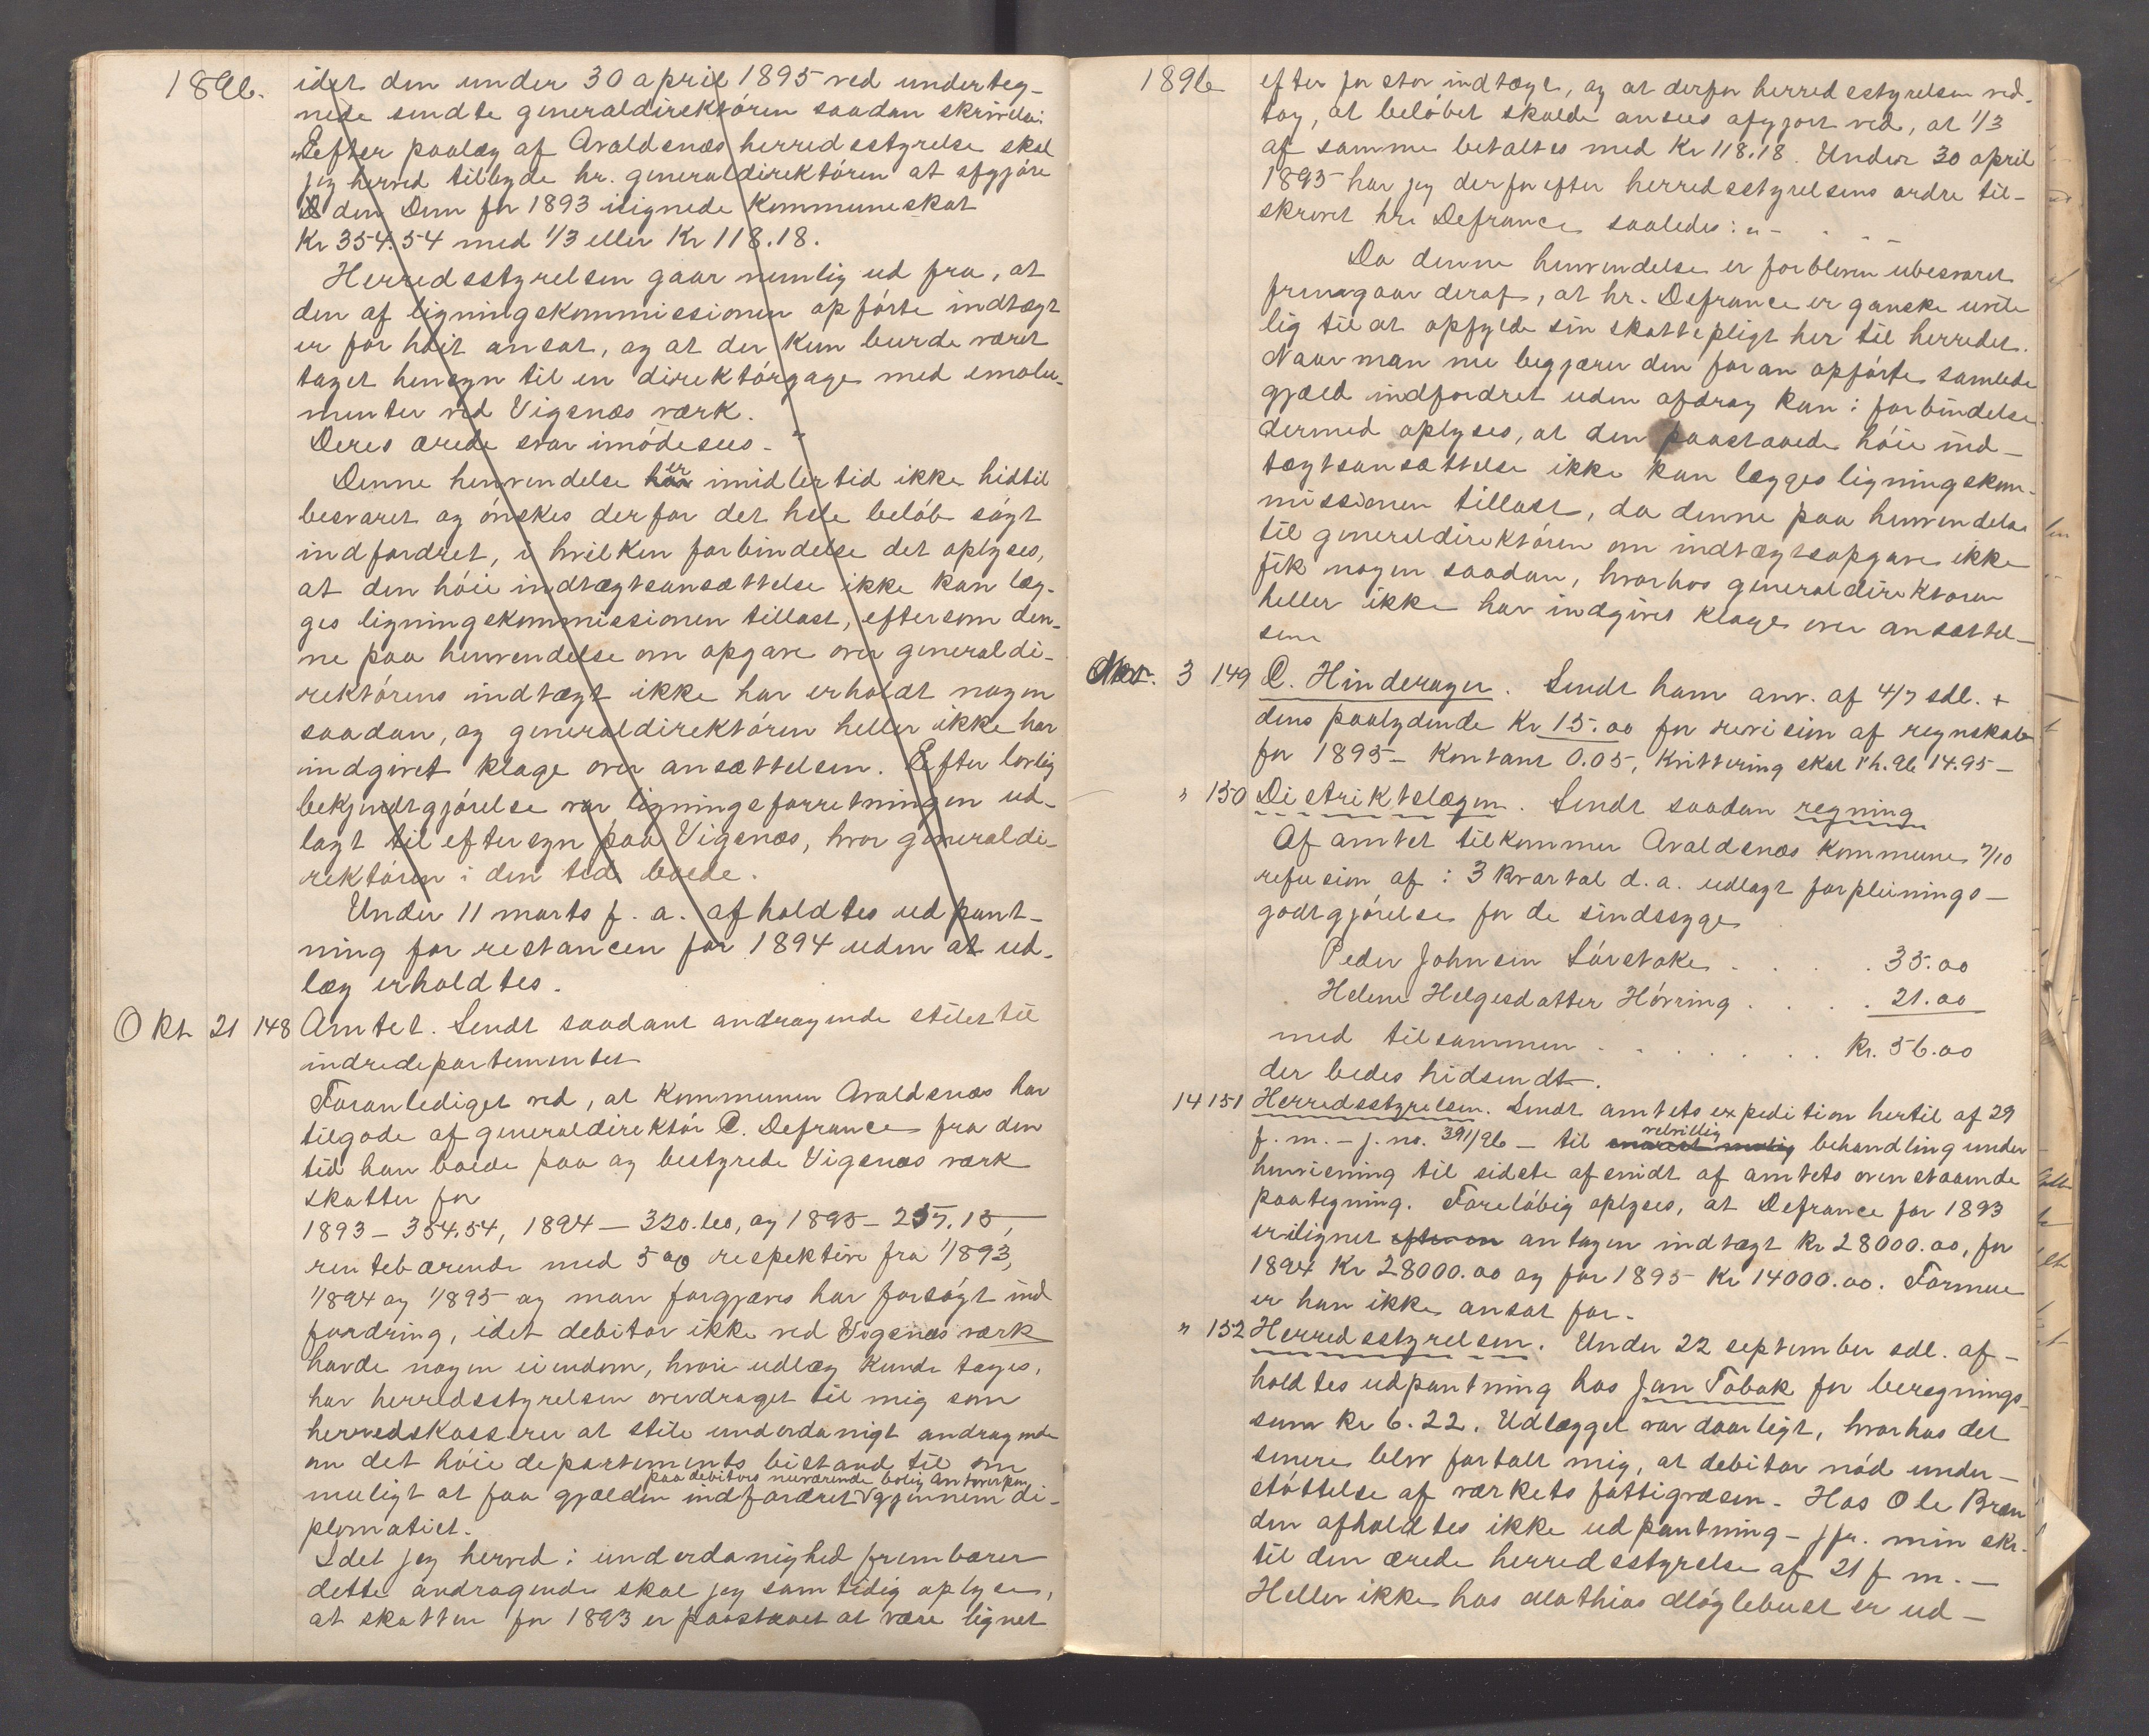 1896.
idet den under 30 april 1895 ved underteg-
nede sendte generaldirektören saadan skrivelse:
"Efter paalæg af Avaldsnæs herredsstyrelse skal
jeg herved tilbyde hr. generaldirektören at afgjöre
den Dem for 1893 ilignede Kommuneskat
Kr 354.54 med 1/3 eller Kr 118.18.
Herredsstyrelsen gaar nemlig ud fra, at
den af ligningskommissionen opförte indtægt
er for höit ansat, og at der kun burde været
taget hensyn til en direktörgage med emolu-
menter ved Vigsnæs værk.
Deres ærede svar imödesees. - "
Denne henvendelse har er imidlertid ikke hidtil
besvaret og önskes derfor det hele belöb sögt
indfordret, i hvilken forbindelse det oplyses,
at den höie indtægtsansættelse ikke kan læg-
ges ligningskommissionen tillast, eftersom den-
ne paa henvendelse om opgave over generaldi-
rektörens indtægt ikke har erholdt nogen
saadan, og generaldirektören heller ikke har
indgivet klage over ansættelsen. Efter lovlig
bekjendtgjörelse var ligningsforretningen ud-
lagt til eftersyn paa Vigsnæs, hvor generaldi-
rektören i den tid boede.
Under 11 marts f. a. afholdtes udpant-
ning for restancen for 1894 uden at ud-
læg erholdtes.
Okt 21 148 Amtet. Sendt saadant andragende stilet til
indredepartementet
Foranlediget ved, at Kommunen Avaldsnæs har
tilgode af generaldirektör C. Defrance fra den
tid han boede paa og bestyrede Vigsnæs værk
skatter for
1893 - 354.54, 1894 - 320.60, og 1895 - 257.15,
rentebærende med 5 % respektive fra 1/1893,
1/1894 og 1/1895 og man forgjæves har forsögt ind
fordring, idet debitor ikke ved Vigsnæs værk
havde nogen eiendom, hvori udlæg kunde tages,
har herredsstyrelsen overdraget til mig som
herredskasserer at stile underdanigt andragende
om det höie departements bistand til om
paa debitors nuværende bolig Antwerpen
muligt at faa gjælden indfordret V gjennem di-
plomatiet.
Idet jeg herved i underdanighed frembærer
dette andragende skal jeg samtidig oplyse,
at skatten for 1893 er paastaaet at være lignet
1896
efter for stor indtægt, og at derfor herredsstyrelsen ved-
tog, at belöbet skulde ansees afgjort ved, at 1/3
af samme betaltes med Kr 118.18. Under 30 april
1895 har jeg derfor efter herredsstyrelsens ordre til-
skrevet hr. Defrance saaledes: " - . - -
Da denne henvendelse er forbleven ubesvaret
fremgaar deraf, at hr. Defrance er ganske uvil
lig til at opfylde sin skattepligt her til herredet.
Naar man nu begjærer den foran opförte samlede
gjæld indfordret uden afdrag kan i forbindelse
dermed oplyses, at den paastaaede höie ind-
tægtsansættelse ikke kan lægges ligningskom-
missionen tillast, da denne paa henvendelse
til generaldirektören om indtægtsopgave ikke
fik nogen saadan, hvorhos generaldirektoren
heller ikke har indgivet klage over ansættel-
sen
Nov. 3 149 C. Hinderager. Sendt ham anv. af 4/7 sdl. +
dens paalydende Kr 15.00 for revision af regnskab
for 1895 - Kontant 0.05, Kvittering skat 1 h. 96 14.95 -
" 150 Distriktslægen. Sendt saadan regning
Af amtet tilkommer Avaldsnæs Kommune 7/10
refusion af i 3 kvartal d. a. udlagt forpleinings-
godtgjörelse for de sindssyge
Peder Johnsen Sörstokke . . . . 35.00
Helene Helgesdatter Hövring . . . . 21.00
med tilsammen . . . . . . . Kr. 56.00
der bedes hidsendt.
14 151 Herredsstyrelsen. Sendt amtets expedition hertil af 29
f. m. - j. no. 391/96 - til velvillig behandling under
henvisning til sidste afsnidt af amtets ovenstaaende
paategning. Foreløbig oplyses, at Defrance for 1893
er ilignet efter en antagen indtægt Kr 28000.00, for
1894 Kr 28000.00 og for 1895 Kr 14000.00. Formue
er han ikke ansat for.
" 152 Herredsstyrelsen. Under 22 september sdl. af-
holdtes udpantning hos Jan Tobak for beregnings-
sum kr 6.22. Udlægget var daarligt, hvorhos det
senere blev fortalt mig, at debitor nöd under-
stöttelse af værkets fattigvæsen. - Hos Ole Bræn
den afholdtes ikke udpantning - jfr. min skr.
til den ærede herredsstyrelse af 21 f m. -
Heller ikke hos Mathias Möglebust er ud-